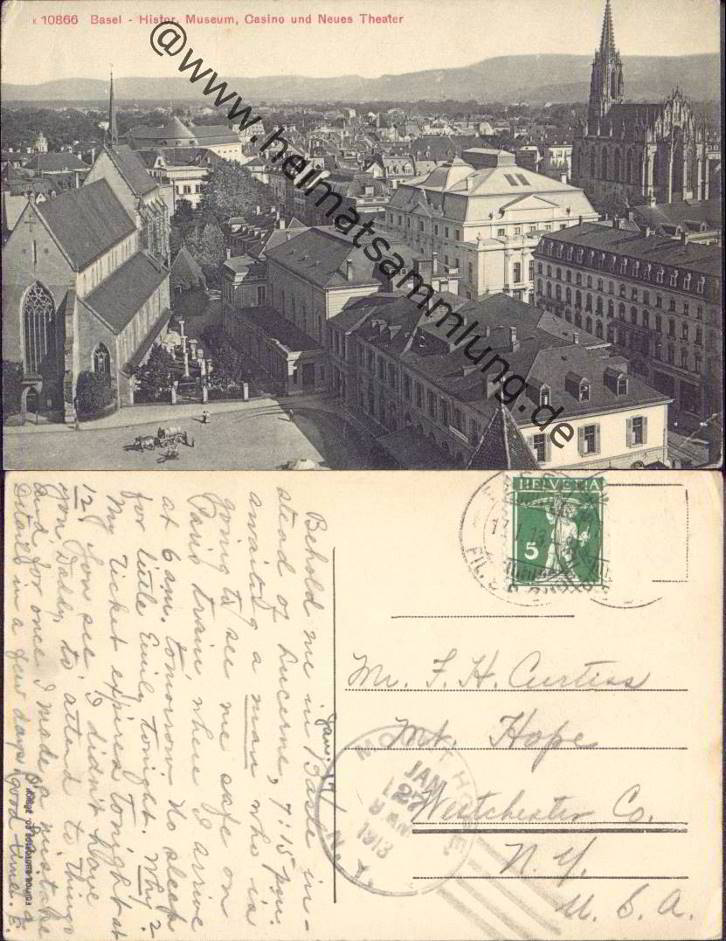 K 10866 Basel - Histor. Museum, Casino und Neues Theater
@www.heimatsammlung.de
HELVETIA
5
Jan. 17
Behold me in Basle in-
stead of Lucerne, 7:15 p.m.
awaiting a man who is
going to see me safe on
Paris train, where I arrive
at 6 am. tomorrow. No sleep
for little Emily tonight. Why?
My ticket expired tonight at
12. You see, I didn't have
you Daddy, to attend to things
and for once I made a mistake
Details in a few days. Had a good time. E.
Mr. F. H. Curtiss
Mt. Hope
Westchester Co.
N. Y.
U. S. A.
MOUNT HOPE
JAN
27
8 AM
1913
N.Y.